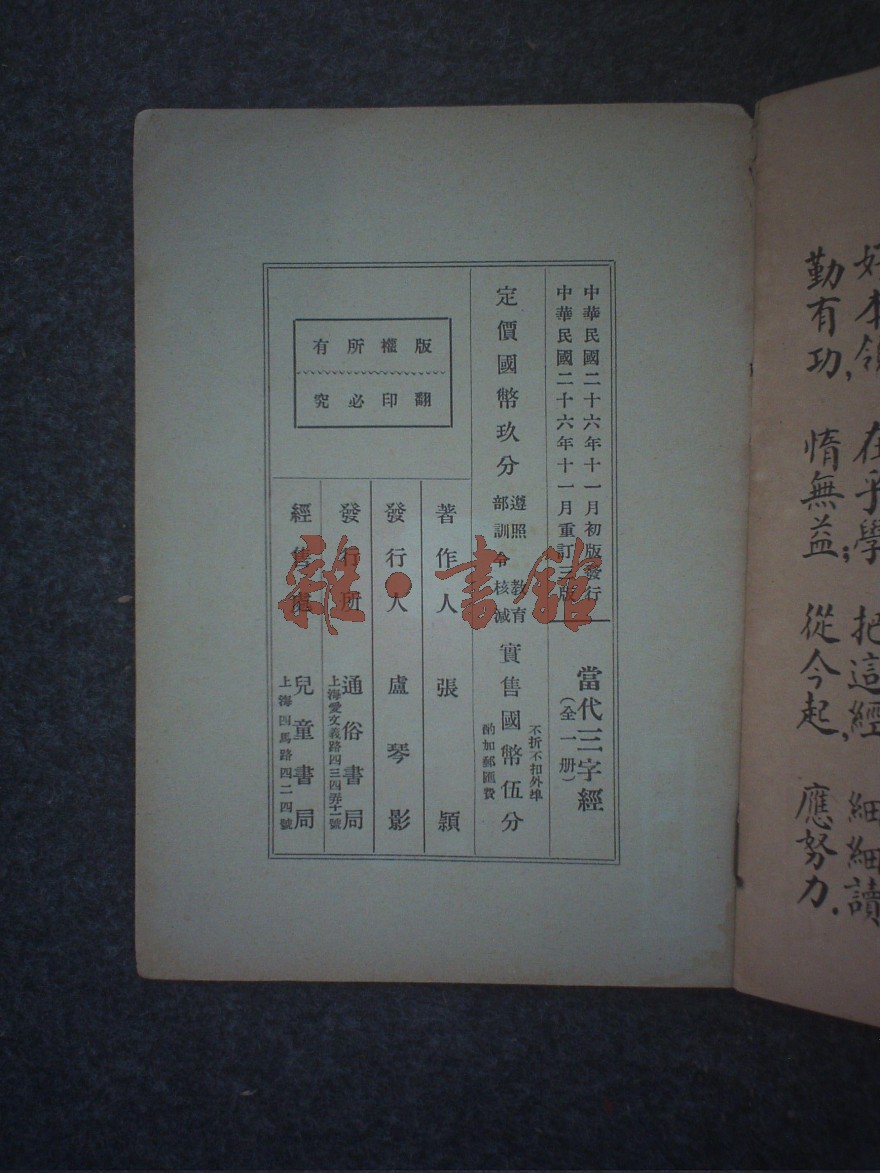 好本領 在乎學 把這經 細細讀
勤有功, 惰無益; 從今起, 應努力.
中華民國二十六年十一月初版發行
中華民國二十六年十一月重訂三版
當代三字經
(全一册)
定價國幣玖分
遵照教育
部訓令核減
實售國幣伍分
不折不扣外埠
酌加郵匯費
版權所有
翻印必究
著作人 張穎
發行人 盧琴影
發行所 通俗書局
上海愛文義路四三四弄十一號
經售處 兒童書局
上海四馬路四二四號
雜·書館